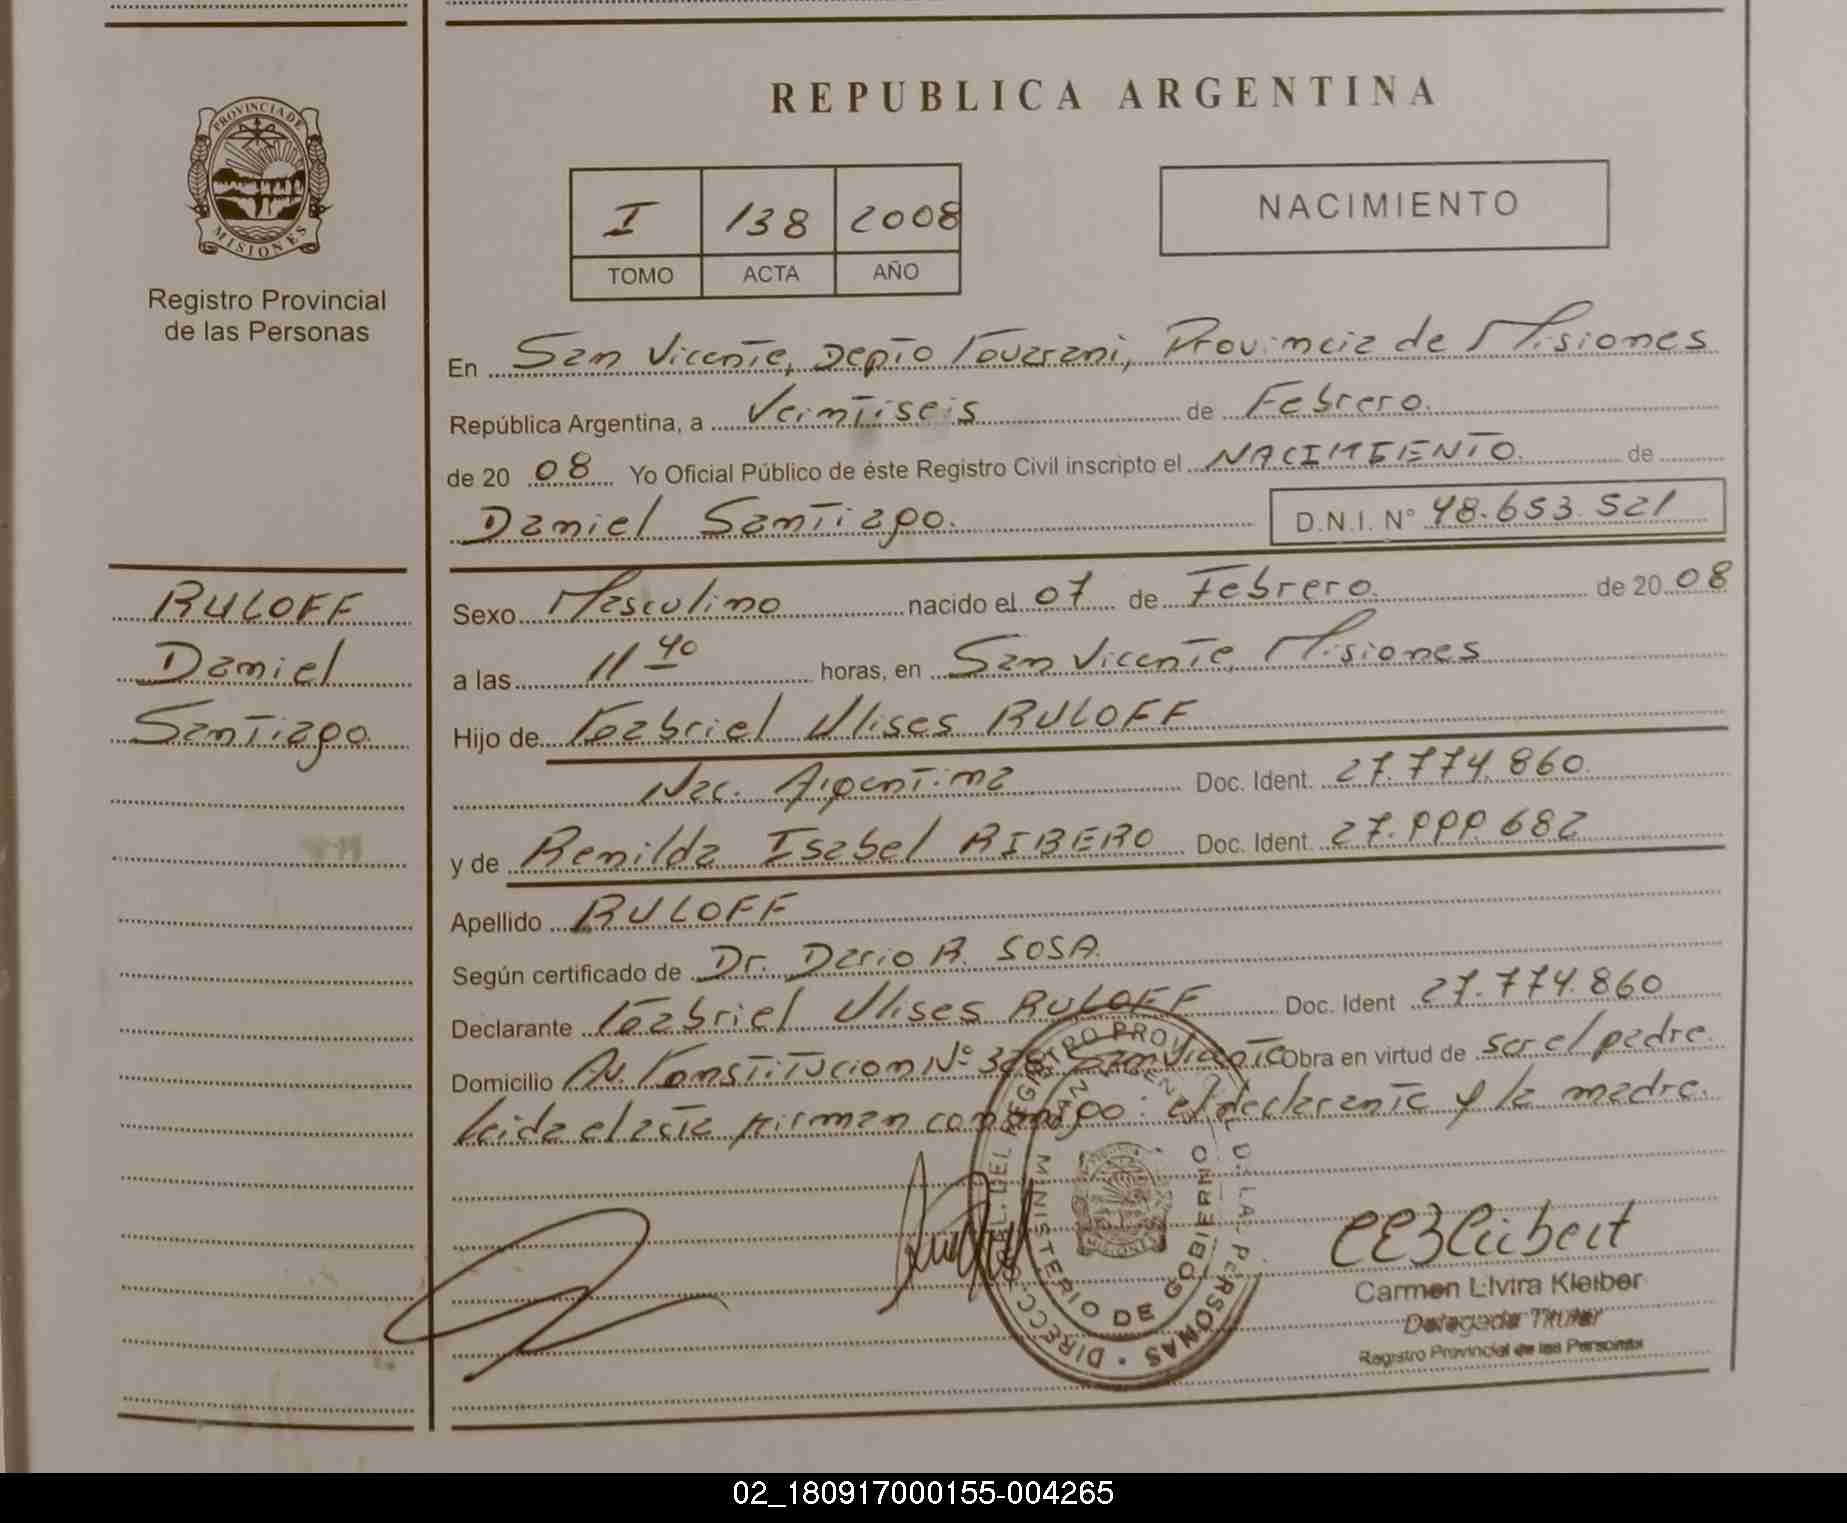 REPUBLICA ARGENTINA
PROVINCIA DE
MISIONES
Registro Provincial
de las Personas
I 138 2008
TOMO ACTA AÑO
NACIMIENTO
En San Vicente, Depto Guarani, Provincia de Misiones
República Argentina, a Veintiseis de Febrero.
de 20 08 Yo Oficial Público de éste Registro Civil inscripto el NACIMIENTO. de
Daniel Santiago. D.N.I. N° 48.653.521
RULOFF
Daniel
Santiago
Sexo Masculino nacido el 07 de Febrero. de 20 08
a las 11 40 horas, en San Vicente, Misiones
Hijo de Gabriel Ulises RULOFF
Nac. Argentina Doc. Ident. 27.774.860.
y de Renilda Isabel RIBERO Doc. Ident. 27.999.682
Apellido RULOFF
Según certificado de Dr. Dario R. SOSA.
Declarante Gabriel Ulises RULOFF Doc. Ident 27.774.860
Domicilio Av. Constitucion N° San Vicente Obra en virtud de ser el padre.
Leida el acta firman conmigo: el declarante y la madre.
DIRECC. GRAL. DEL REGISTRO PROVINCIAL D. LA. PERSONAS
MINISTERIO DE GOBIERNO
MISIONES
Carmen Elvira Kleiber
Delegada Titular
Registro Provincial de las Personas
02_180917000155-004265